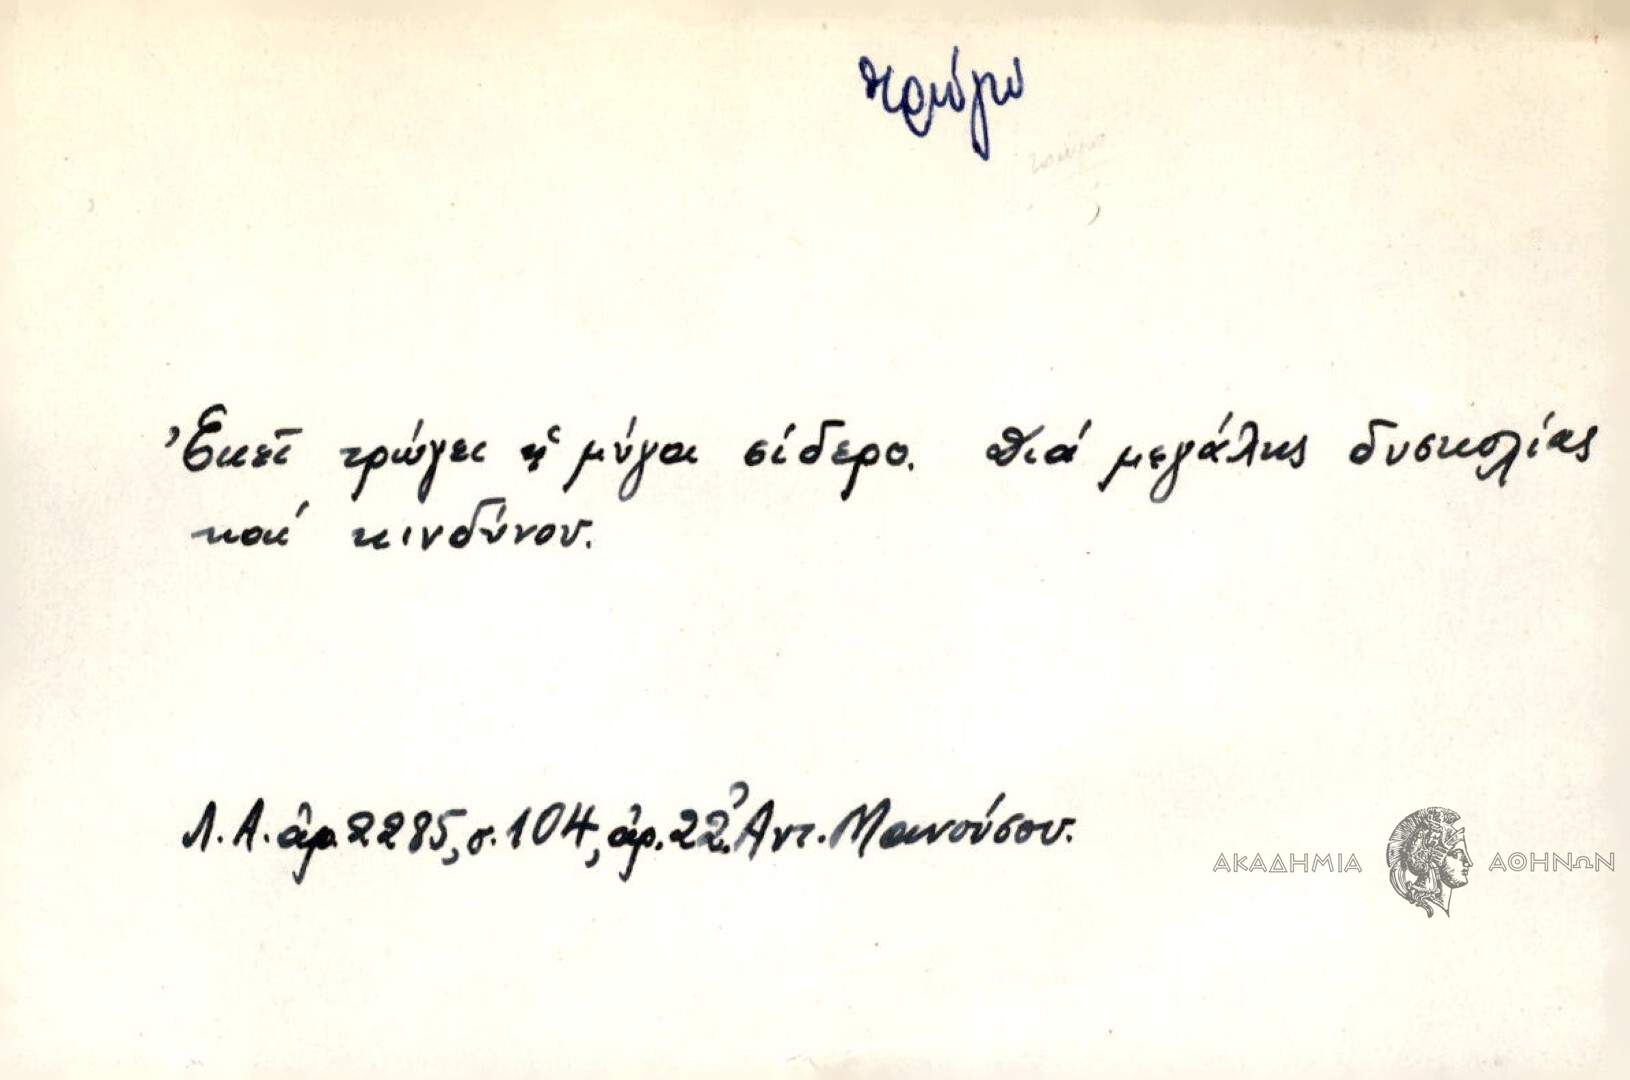 τρώγω
Ἐκεῖ τρώγει ἡ μύγα σίδερο. Διά μεγάλης δυσκολίας
καί κινδύνου.
Λ.Α. ἀρ. 2285, σ. 104, ἀρ. 22. Ἀντ. Μανούσου.
ΑΚΑΔΗΜΙΑ ΑΘΗΝΩΝ